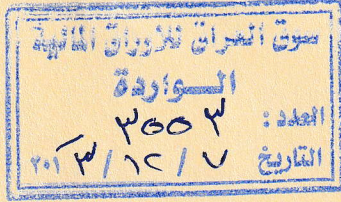 سوق العراق للأوراق المالية
الـــواردة
العدد : ٣٥٥٣
التاريخ ٧ / ١٢ / ٢٠١٣